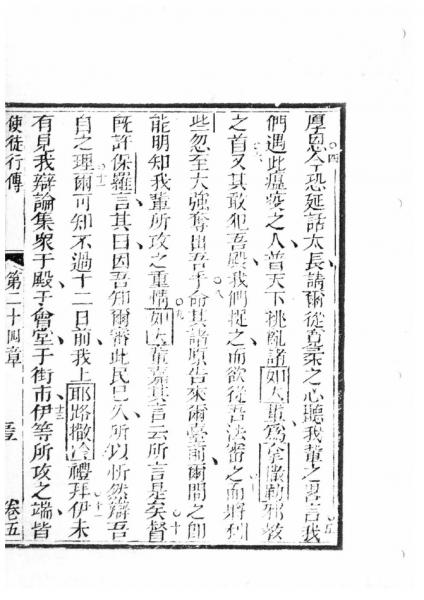 厚恩今恐延話太長請爾從寬柔之心聽我輩之畧言我
們遇此瘟疫之人普天下挑亂諸如大輩為拿撒勒邪教
之首又其敢犯吾殿我們捉之而欲從吾法審之而將利
些忽至大強奪出吾手命其諸原告來爾臺前爾問之即
能明知我輩所攻之重情如大輩嘉其言云所言是矣督
既許保羅言其曰因吾知爾審此民已久所以忻然辯吾
自之理爾可知不過十二日前我上耶路撒冷禮拜伊未
有見我辯論集衆于殿于會堂于街市伊等所攻之端皆
使徒行傳 第二十四章 卷五